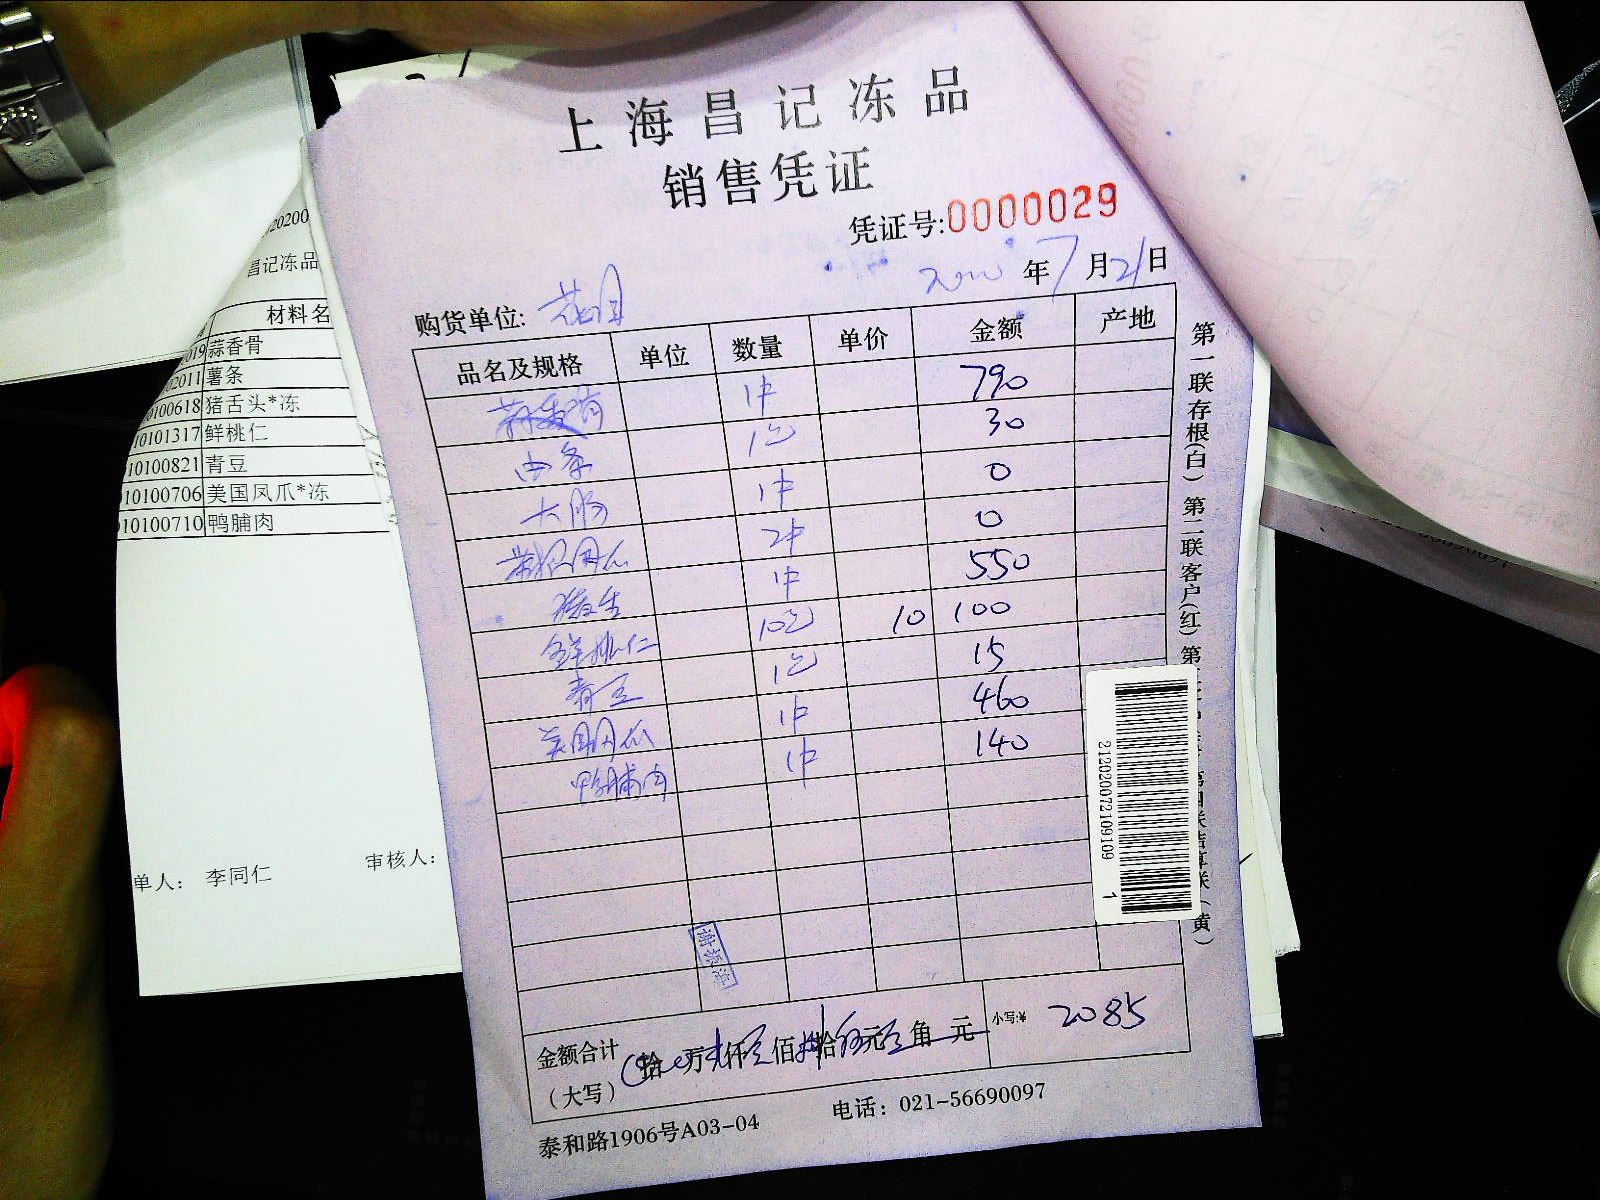 上海昌记冻品
销售凭证
凭证号:0000029
年7月21日
购货单位:
品名及规格 单位 数量 单价 金额 产地
蒜香骨 1件 790
由条 1包 30
大肠 1件 0
2件 0
猪舌 1件 550
鲜桃仁 10包 10 100
青豆 1包 15
美国凤爪 1件 460
鸭脯肉 1件 140
金额合计 拾 万 仟 佰 拾 元 角 元 小写:¥ 2085
(大写)
泰和路1906号A03-04 电话: 021-56690097
第一联存根(白) 第二联客户(红) 第
(黄)
212020072109109 1
20200
昌记冻品
材料名
019 蒜香骨
02011 薯条
0100618 猪舌头*冻
10101317 鲜桃仁
10100821 青豆
10100706 美国凤爪*冻
10100710 鸭脯肉
单人: 李同仁 审核人: